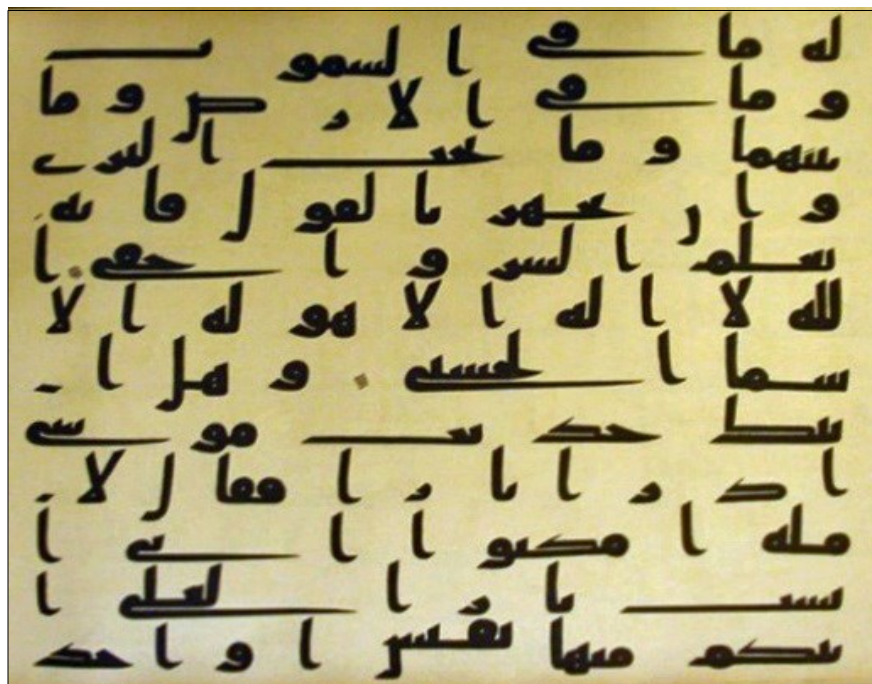 له ما في السموت
وما في الارض وما
بينهما وما تحت الثرى
وان تجهر بالقول فانه
يعلم السر واخفى ا
لله لا اله الا هو له الا
سما الحسنى وهل ا
تيك حديث موسى
اذ را نارا فقال لا
هله امكثوا اني ا
نست نارا لعلي ا
تيكم منها بقبس او اجد